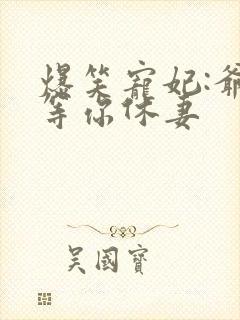 爆笑寵妃:爺
等你休妻
吳國寶